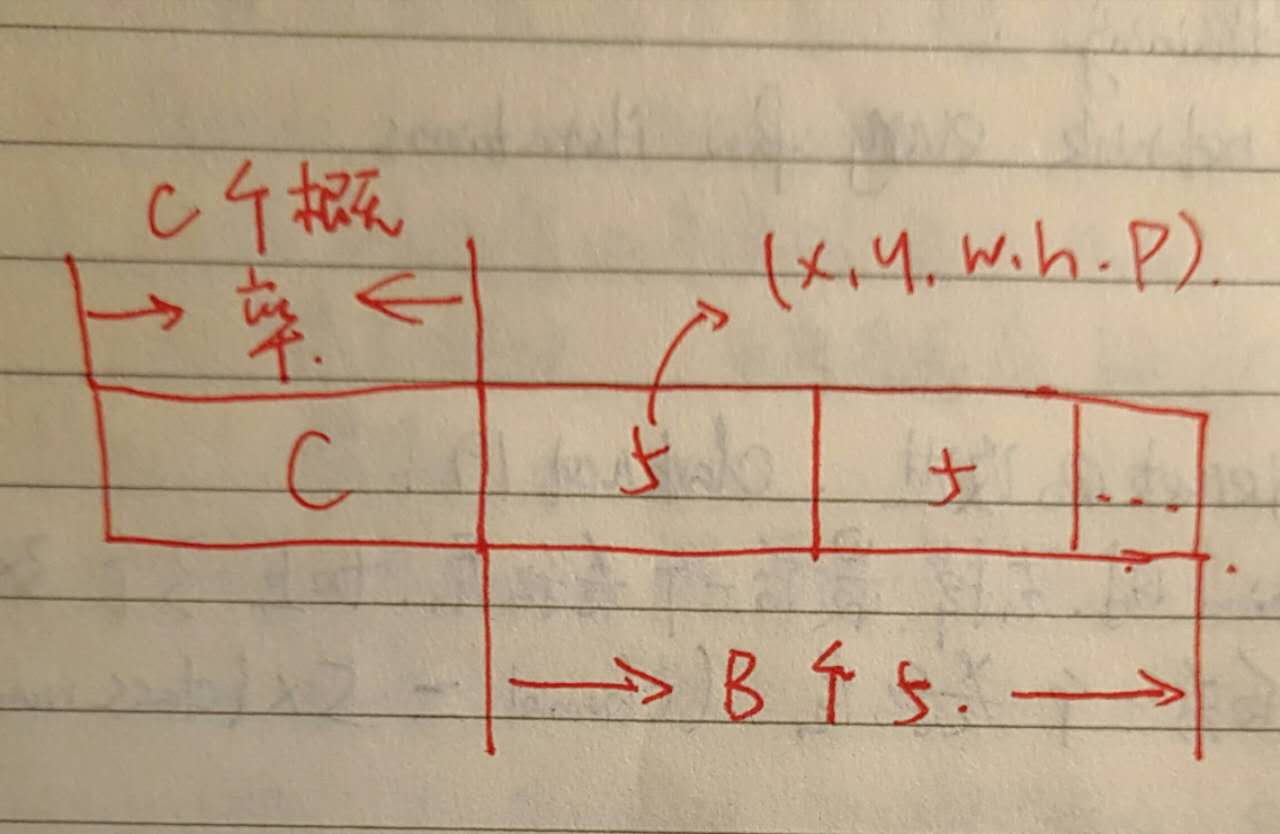 C个概
率.
(x.y.w.h.P).
C
5
5
...
B个5.